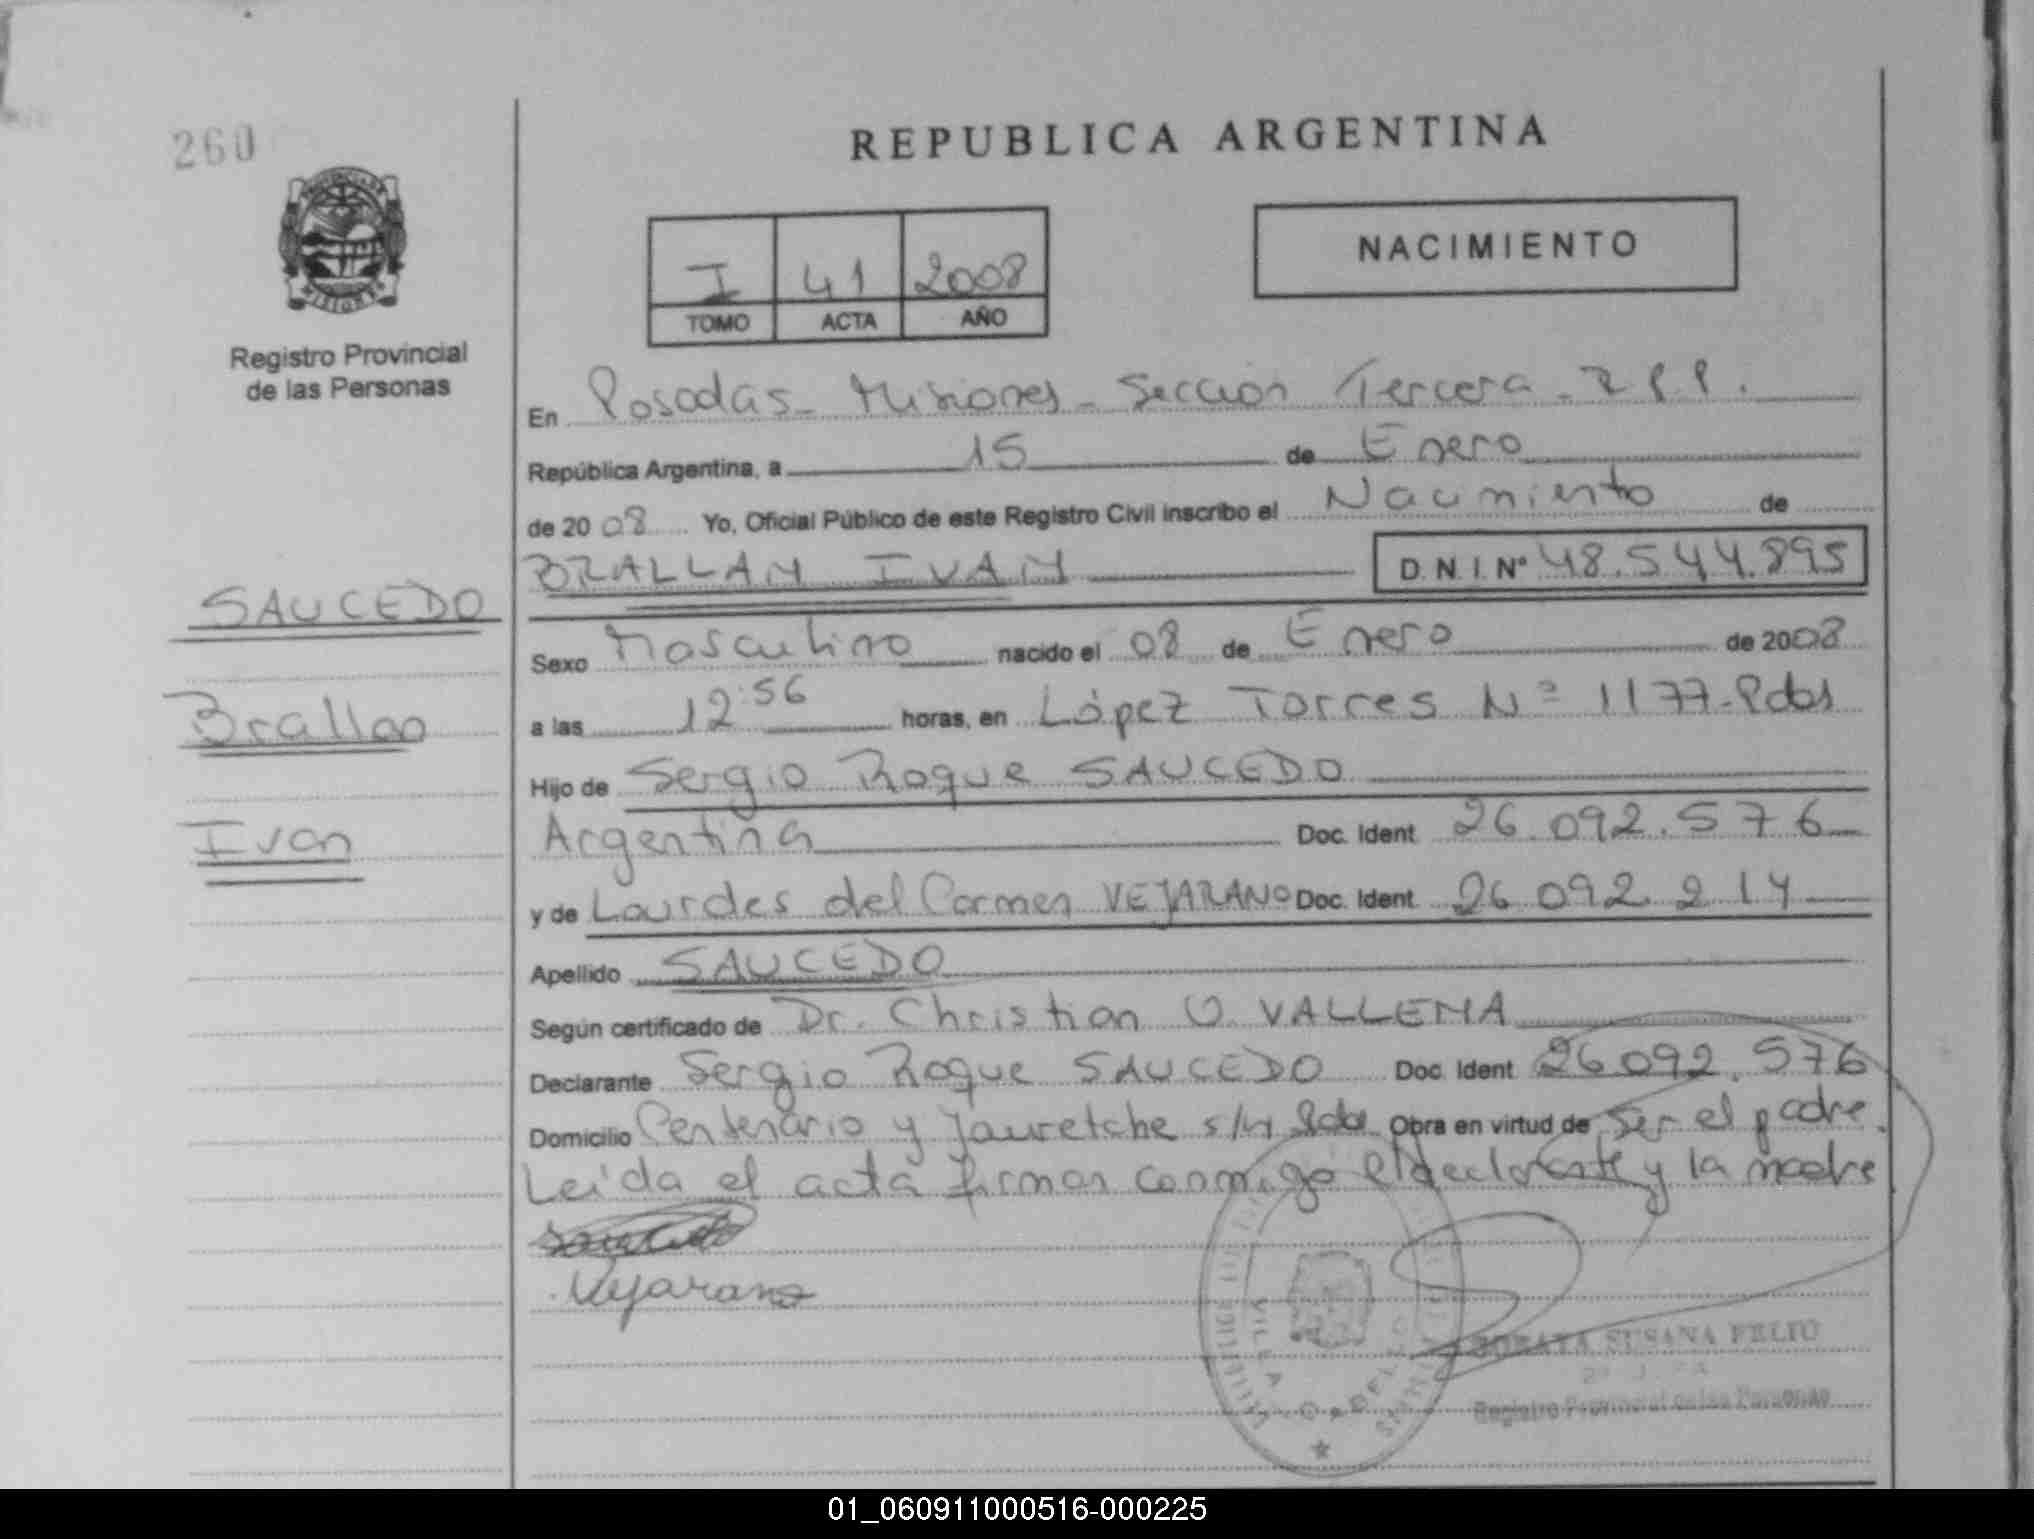 260
REPUBLICA ARGENTINA
PROVINCIA DE
MISIONES
Registro Provincial
de las Personas
I 41 2008
TOMO ACTA AÑO
NACIMIENTO
En Posadas - Misiones - Sección Tercera -
República Argentina, a 15 de Enero
de 2008 Yo, Oficial Público de este Registro Civil inscribo el Nacimiento de
BRALLAN IVAN D.N.I.Nº 48.544.895
SAUCEDO
Sexo Masculino nacido el 08 de Enero de 2008
Brallan
a las 12:56 horas, en López Torres Nº 1177-Pdas
Hijo de Sergio Roque SAUCEDO
Ivan
Argentina Doc. Ident 26.092.576
y de Lourdes del Carmen VEJARANO Doc. Ident 26.092.214
Apellido SAUCEDO
Según certificado de Dr. Christian O. VALLEMA
Declarante Sergio Roque SAUCEDO Doc. Ident 26.092.576
Domicilio Centenario y Jauretche s/n Pdas Obra en virtud de ser el padre.
Leída el acta firman conmigo el declarante y la madre
Saucedo
Vejarano
VILLA CABELLO
SUSANA FELIU
Registro Provincial de las Personas
01_060911000516-000225